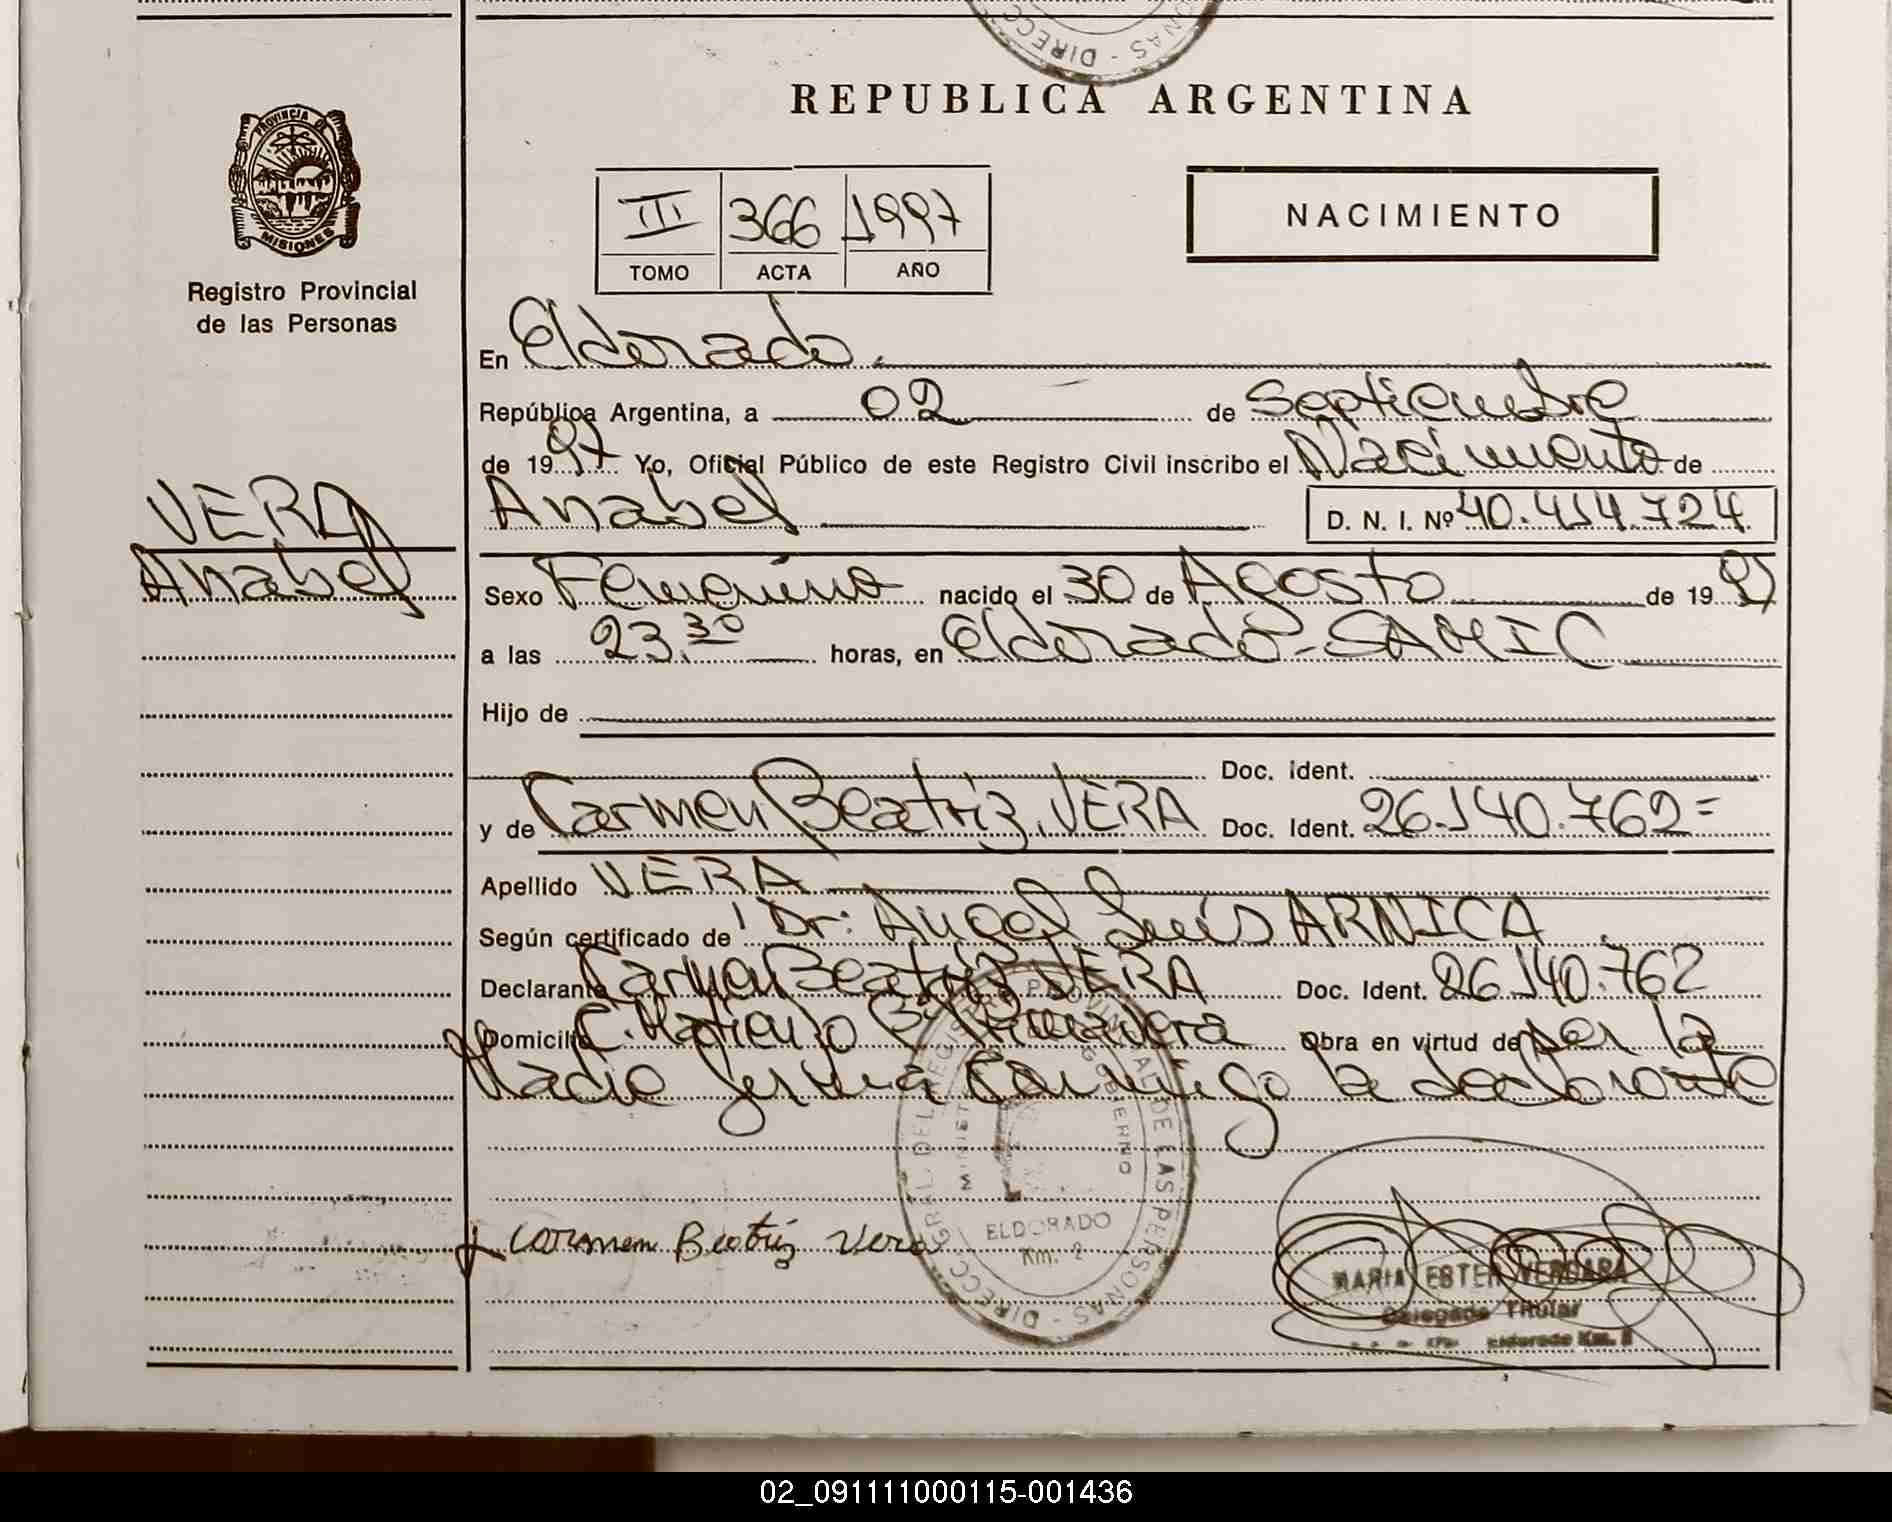 DIRECC NAS
REPUBLICA ARGENTINA
PROVINCIA DE
MISIONES
Registro Provincial
de las Personas
III 366 1997
TOMO ACTA AÑO
NACIMIENTO
En Eldorado
República Argentina, a 02 de Septiembre
de 1997 Yo, Oficial Público de este Registro Civil inscribo el Nacimiento de
VERA
Anabel
Anabel D. N. I. Nº 40.414.724
Sexo Femenino nacido el 30 de Agosto de 1997
a las 23.30 horas, en Eldorado-SAMIC
Hijo de
Doc. Ident.
y de Carmen Beatriz VERA Doc. Ident. 26.140.762=
Apellido VERA
Según certificado de Dr: Angel Luis ARNICA
Declarante Carmen Beatriz VERA Doc. Ident. 26.140.762
Domicilio C. Matienzo Bº Primavera Obra en virtud de ser la
Madre firma Conmigo la declarante
DIRECC. GRAL. DEL REGISTRO PROVINCIAL DE LAS PERSONAS
GOBIERNO
ELDORADO
Km. 2
Carmen Beatriz Vera
MARIA ESTER VERGARA
Delegada Titular
Eldorado Km.
02_091111000115-001436